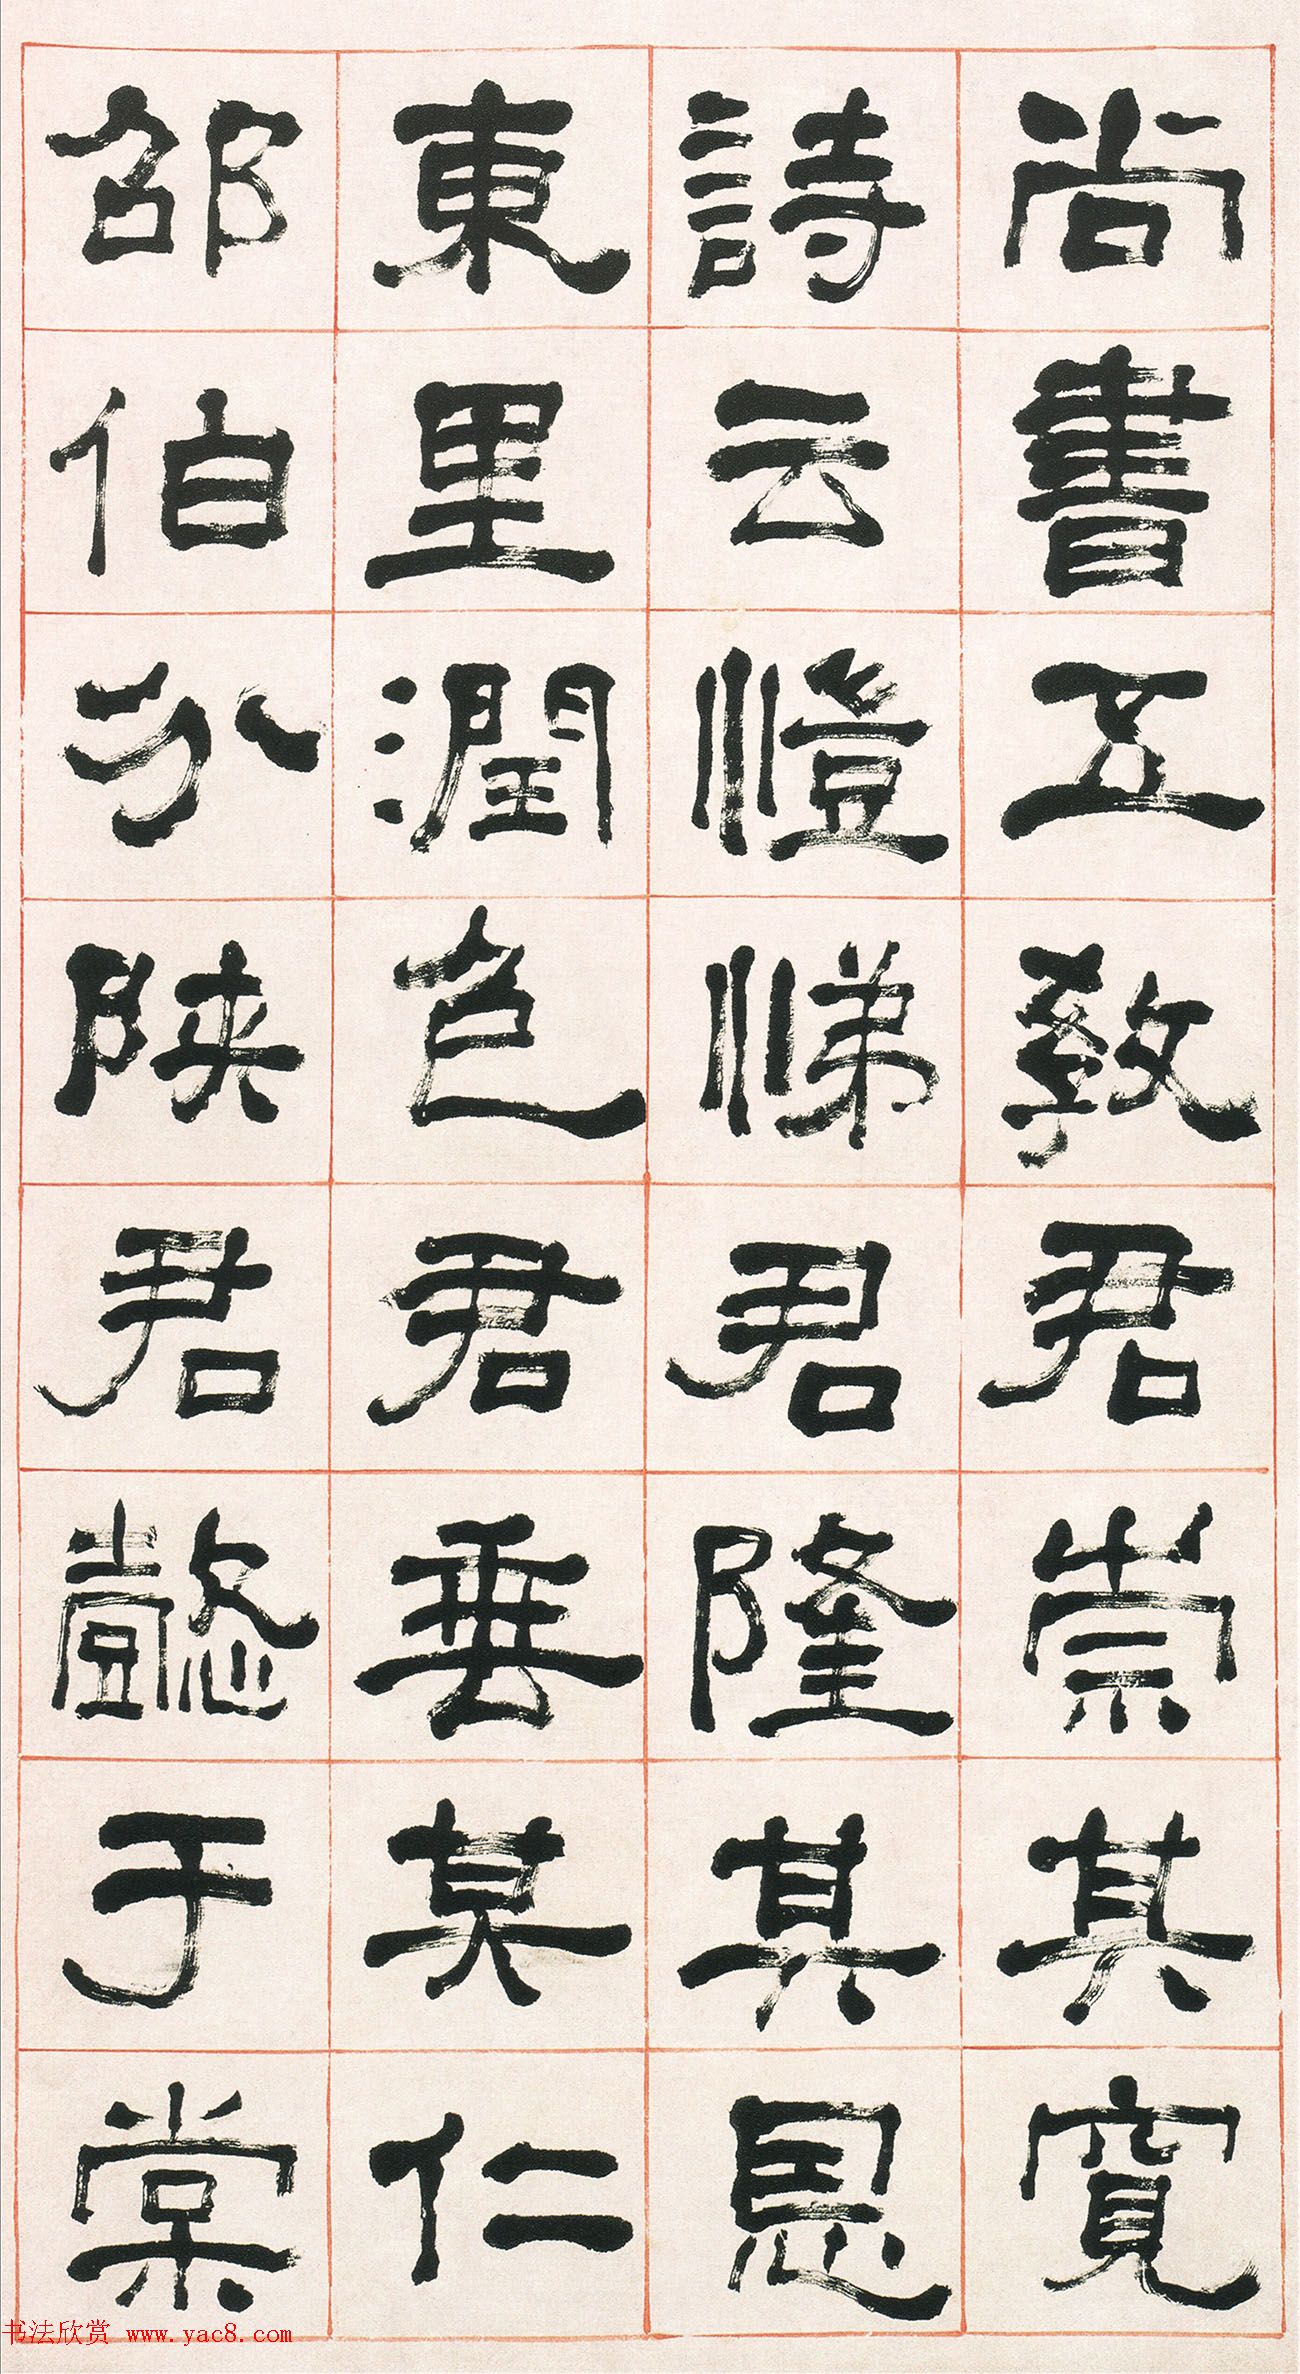 尚書五教君崇其寬
詩云愷悌君隆其恩
東里潤色君垂其仁
邵伯分陝君懿于棠
书法欣赏 www.yac8.com